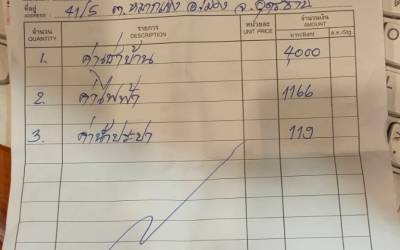 ที่อยู่ ADDRESS 41/5 ต. หมากแข้ง อ.เมือง จ.อุดรธานี
จำนวน รายการ หน่วยละ จำนวนเงิน
QUANTITY DESCRIPTION UNIT PRICE AMOUNT
บาท/Baht ส.ต.-Stg.
1. ค่าเช่าบ้าน 4,000
2. ค่าไฟฟ้า 1166
3. ค่าน้ำประปา 119